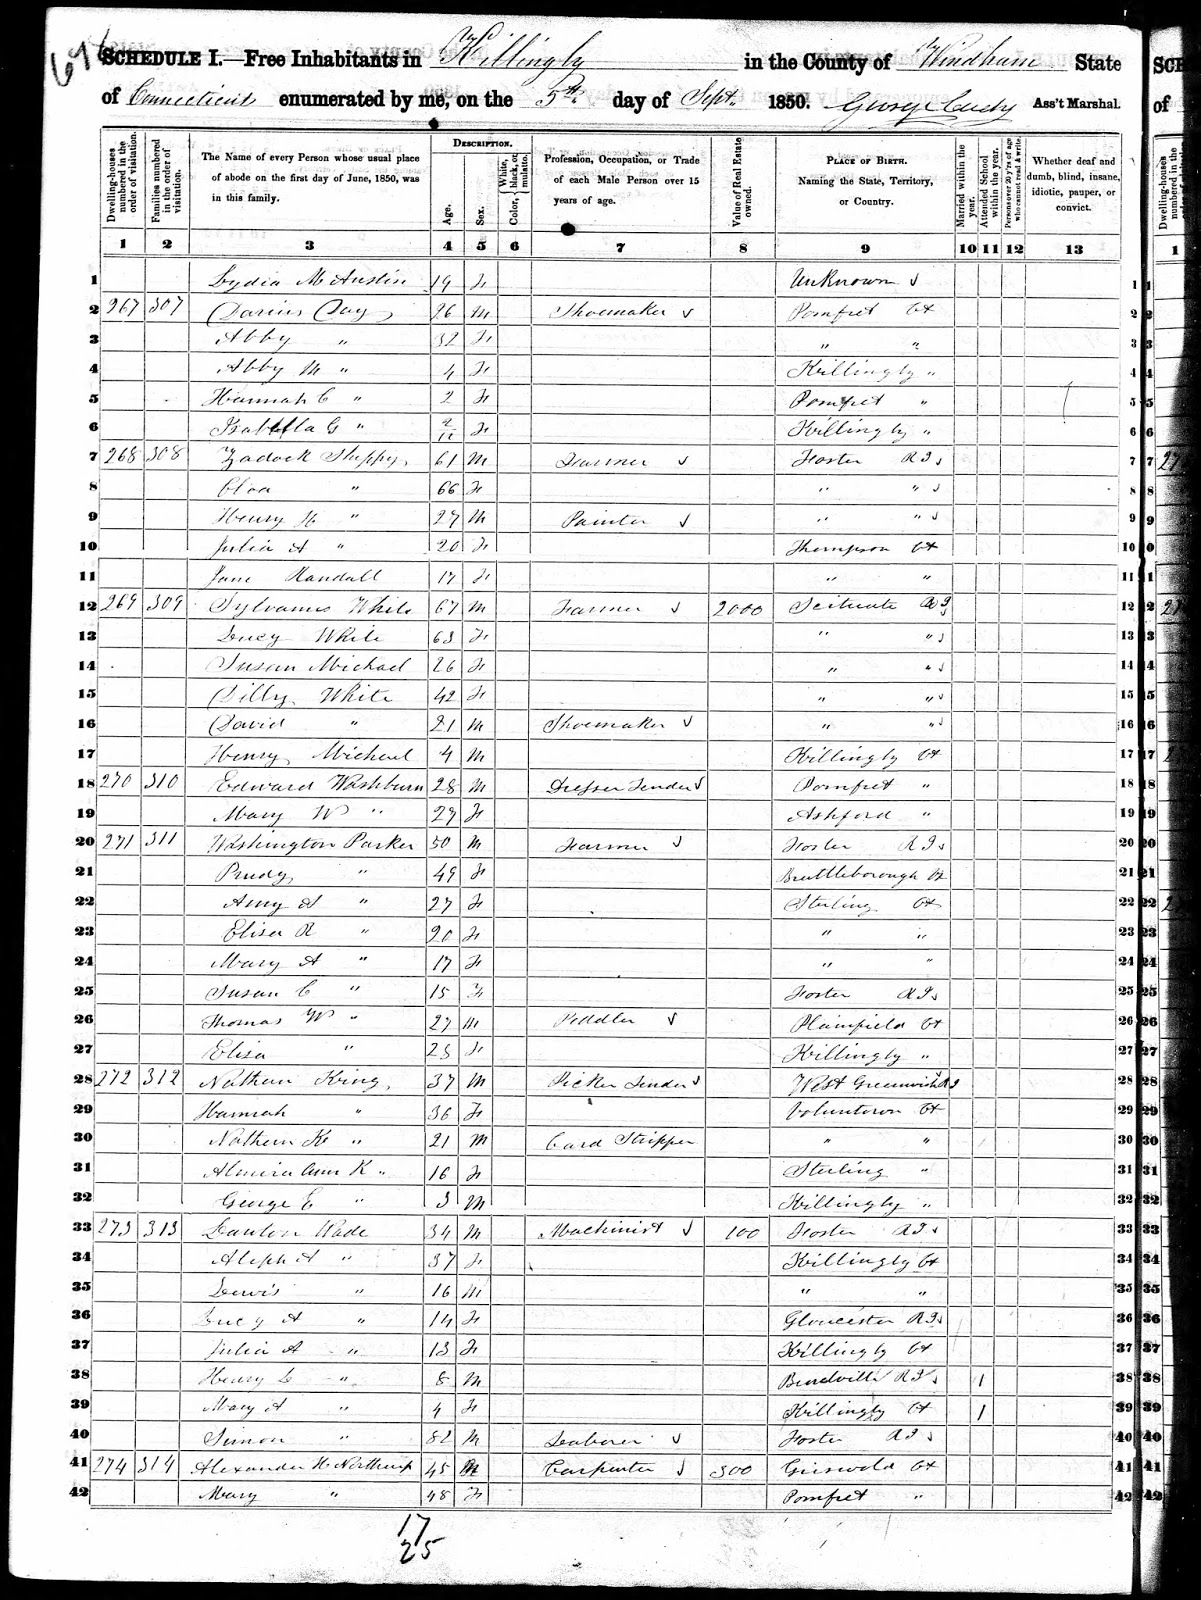 SCHEDULE I.—Free Inhabitants in Killingly in the County of Windham State
of Connecticut enumerated by me, on the 5th day of Sept. 1850. George Cudy Ass't Marshal.
Dwelling-houses numbered in the order of visitation. Families numbered in the order of visitation. The Name of every Person whose usual place of abode on the first day of June, 1850, was in this family. DESCRIPTION. Age. Sex. Color, { White, black, or mulatto. Profession, Occupation, or Trade of each Male Person over 15 years of age. Value of Real Estate owned. PLACE OF BIRTH. Naming the State, Territory, or Country. Married within the year. Attended School within the year. Persons over 20 years of age who cannot read & write. Whether deaf and dumb, blind, insane, idiotic, pauper, or convict.
1 2 3 4 5 6 7 8 9 10 11 12 13
1 Lydia M Austin 19 F Unknown 1
2 267 307 Darius Day 26 M Shoemaker Pomfret Ct 2
3 Abby " 32 F " " 3
4 Abby M " 4 F Killingly " 4
5 Hannah C " 2 F Pomfret " 5
6 Isabella G " 2/12 F Killingly " 6
7 268 308 Zadock Shippy 61 M Farmer Foster R I 7
8 Cloa " 66 F " " 8
9 Henry H " 27 M Painter " " 9
10 Julia A " 20 F Thompson Ct 10
11 Jane Randall 17 F " " 11
12 269 309 Sylvanus White 67 M Farmer 2000 Scituate R I 12
13 Lucy White 63 F " " 13
14 Susan Michael 26 F " " 14
15 Dilly White 42 F " " 15
16 David " 21 M Shoemaker " " 16
17 Henry Micheal 4 M Killingly Ct 17
18 270 310 Edward Washburn 28 M Dresser Tender Pomfret " 18
19 Mary W " 27 F Ashford " 19
20 271 311 Washington Parker 50 M Farmer Foster R I 20
21 Prudy " 49 F Brattleborough 21
22 Amy A " 27 F Sterling Ct 22
23 Elisa R " 20 F " " 23
24 Mary A " 17 F " " 24
25 Susan C " 15 F Foster R I 25
26 Thomas W " 27 M Peddler Plainfield Ct 26
27 Elisa " 25 F Killingly " 27
28 272 312 Nathan King 37 M Picker Tender West Greenwich R I 28
29 Hannah " 36 F Voluntown Ct 29
30 Nathan K " 21 M Card Stripper " " 30
31 Almira Ann K " 16 F Sterling " 31
32 George E " 3 M Killingly " 32
33 273 313 Lawton Wade 34 M Machinist 100 Foster R I 33
34 Aleph A " 37 F Killingly Ct 34
35 Lewis " 16 M " " 35
36 Lucy A " 14 F Gloucester R I 36
37 Julia A " 13 F Killingly Ct 37
38 Henry L " 8 M R I 1 38
39 Mary A " 4 F Killingly Ct 1 39
40 Simon " 82 M Laborer Foster R I 40
41 274 314 Alexander H Northrup 45 M Carpenter 300 Griswold Ct 41
42 Mary " 48 F Pomfret " 42
17
25